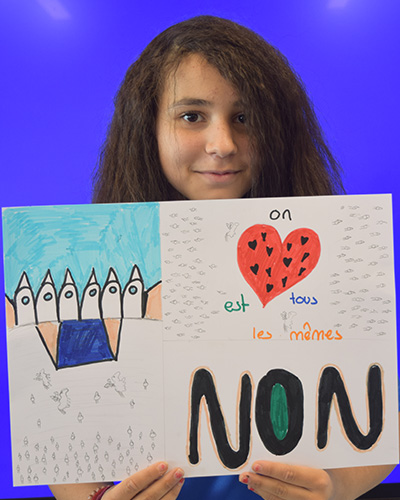 on
est tous
les mêmes
NON